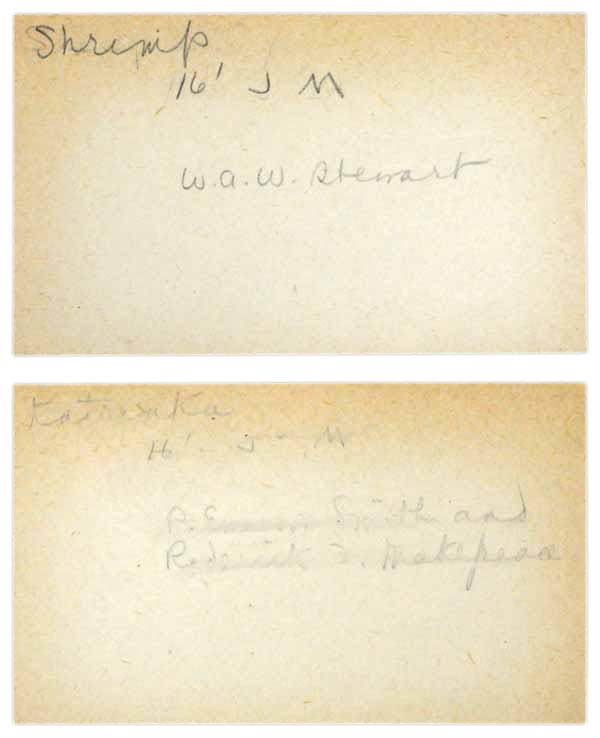 Shrimp
16' J M
W.A.W. Stewart
Katrinka
16' - J - M
Smith and
Makepeace